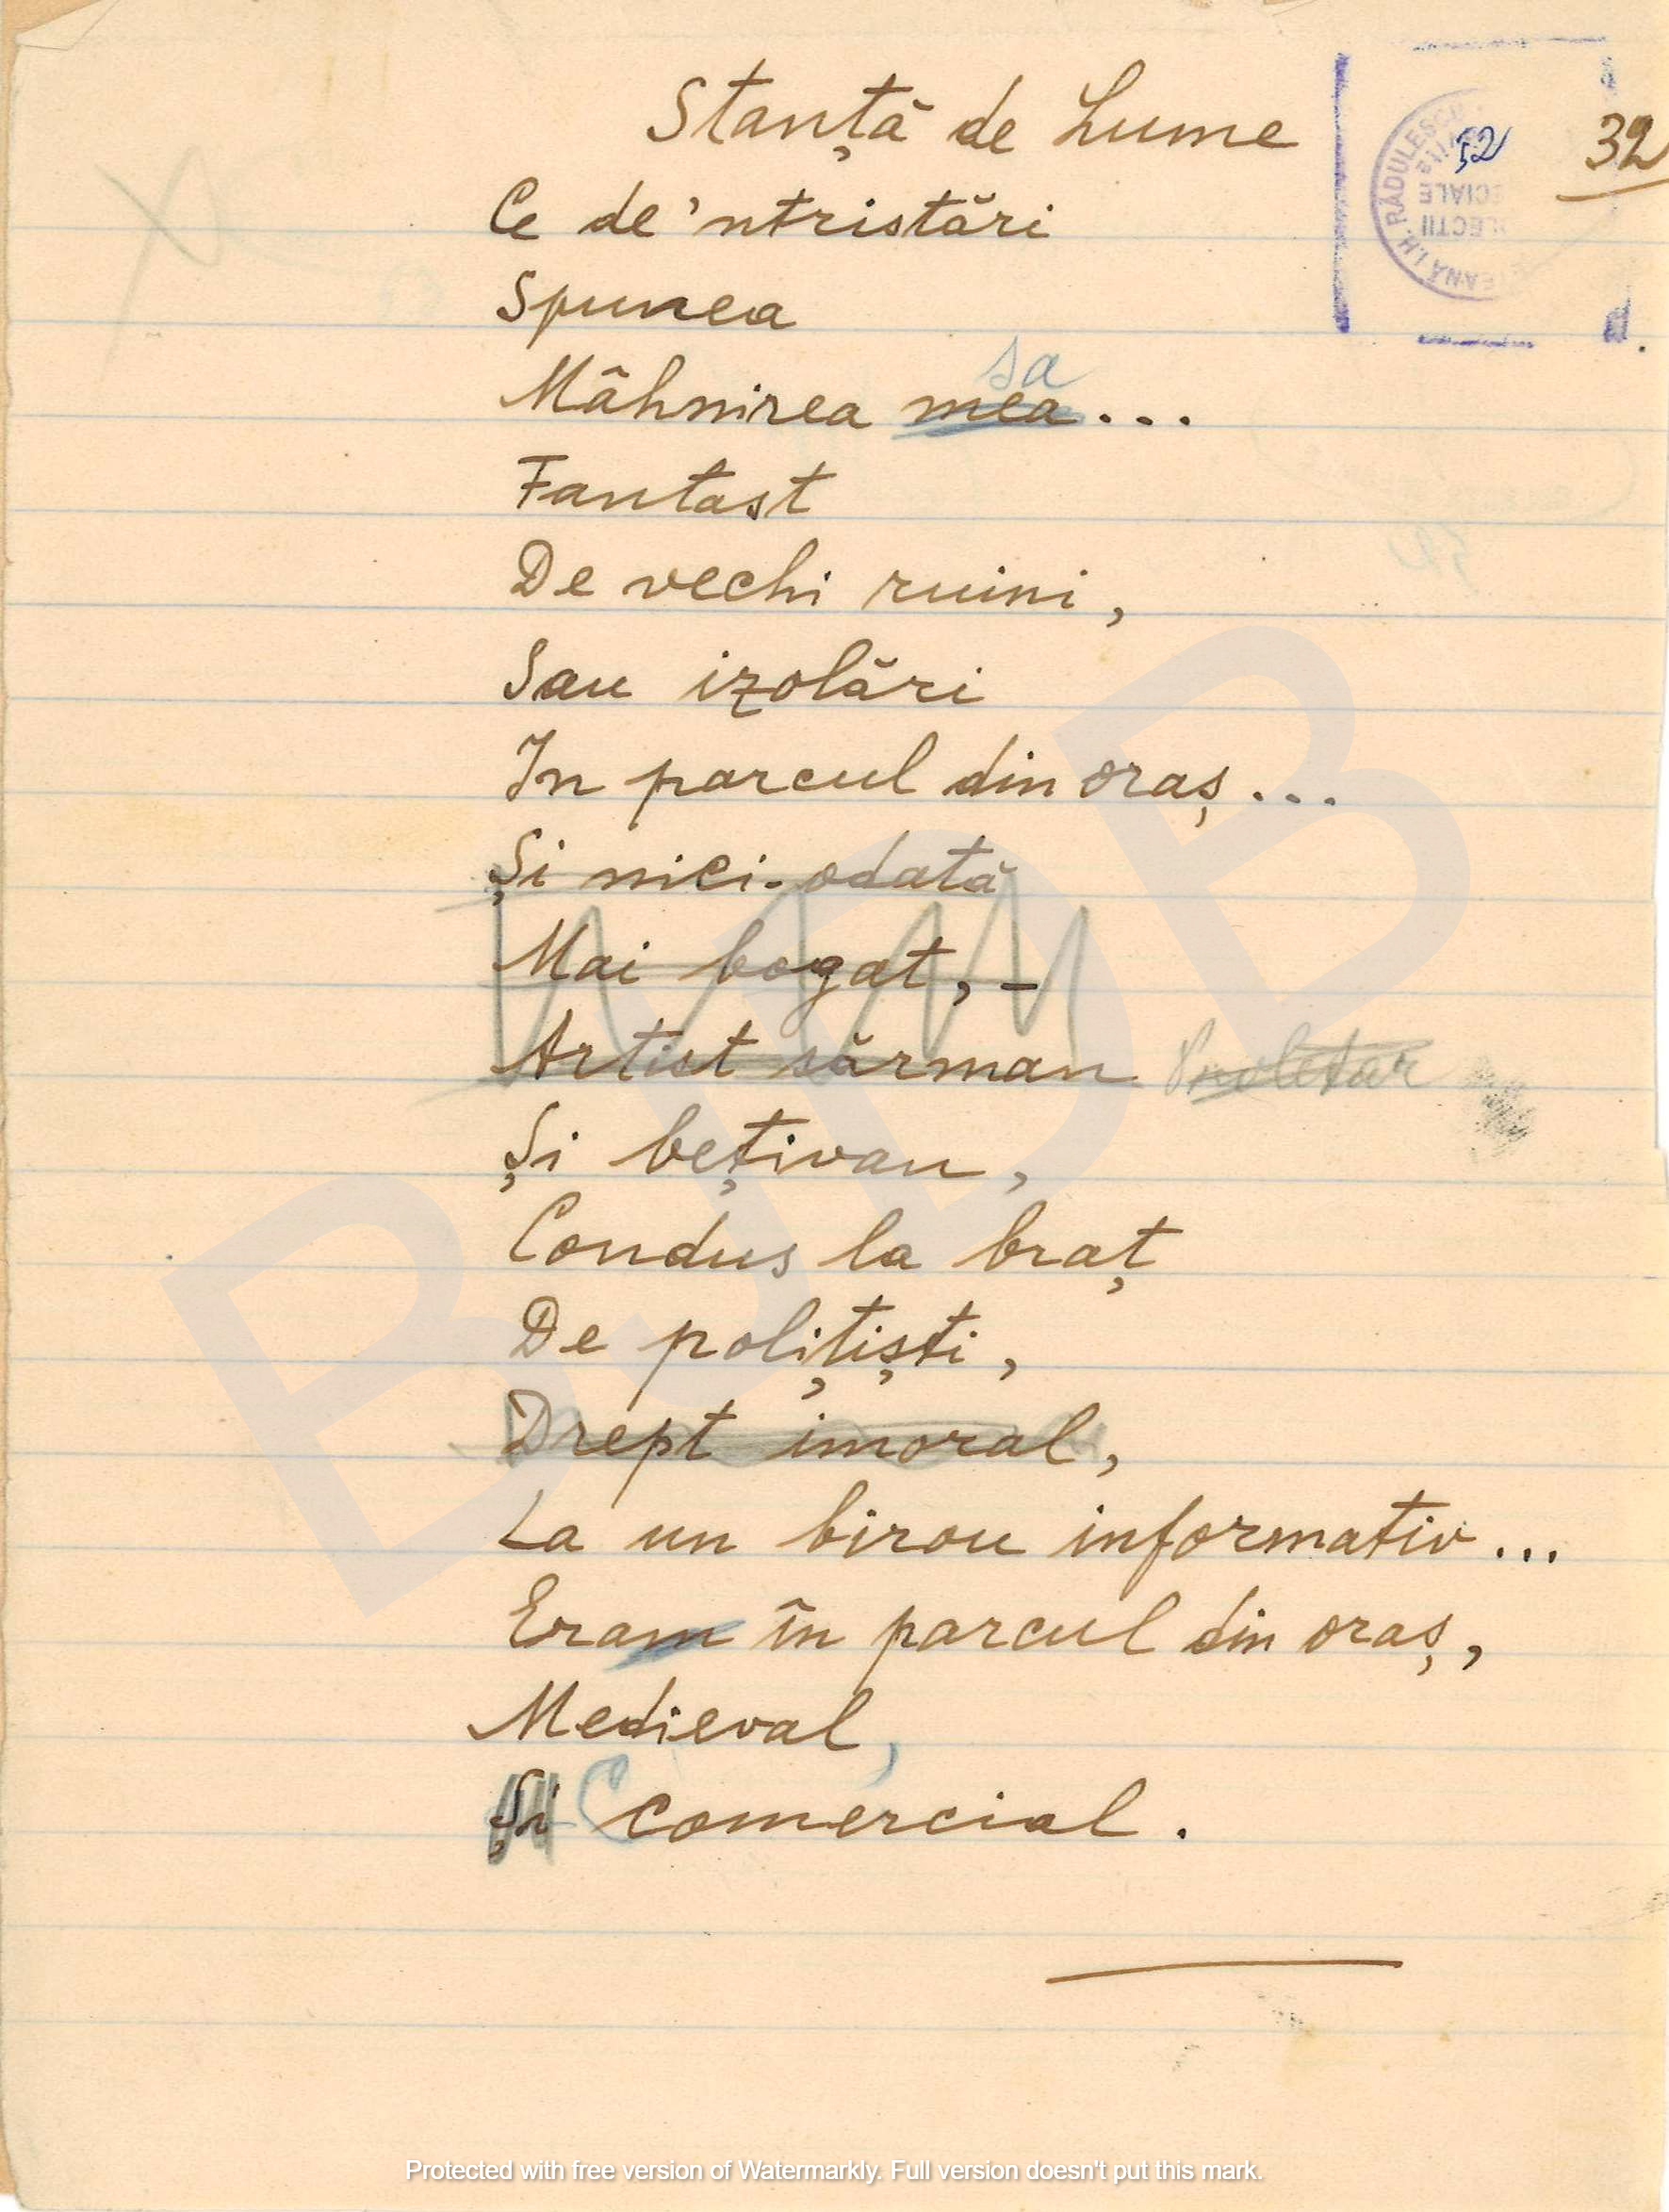 Stanță de Lume
52
32
Ce de'ntristări
Spunea
sa
Mâhnirea mea...
Fantast
De vechi ruini,
Sau izolări
In parcul din oraș...
Și nici-odată
Mai bogat, -
Artist sărman Proletar
Și bețivan,
Condus la braț
De polițiști,
Drept imoral,
La un birou informativ...
Eram în parcul din oraș,
Medieval,
Și C comercial.
BJDB
Protected with free version of Watermarkly. Full version doesn't put this mark.